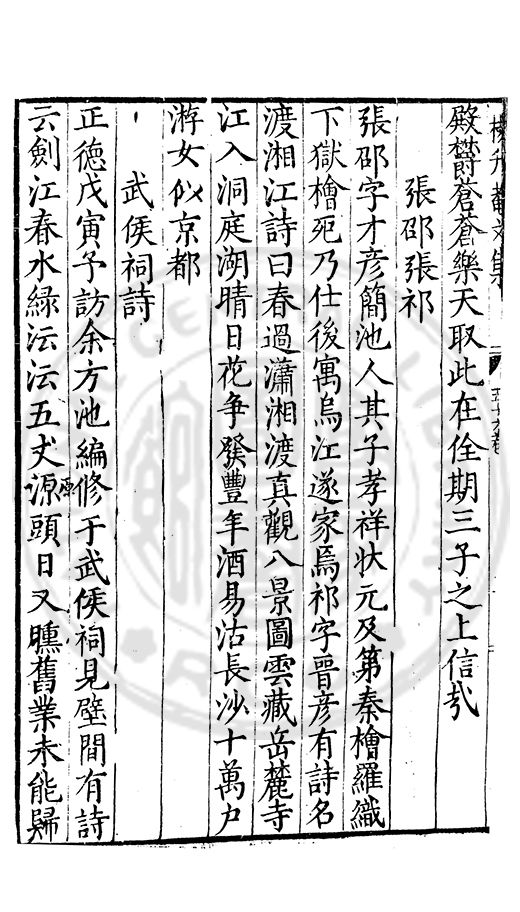 楊升菴文集
五十九卷
殿欝蒼蒼樂天取此在佺期三子之上信㦲
張邵張祁
張邵字才彦簡池人其子孝祥狀元及第秦檜羅織
下獄檜死乃仕後寓烏江遂家焉祁字晋彦有詩名
渡湘江詩曰春過瀟湘渡真觀八景圖雲藏岳麓寺
江入洞庭湖晴日花争發豐年酒易沽長沙十萬户
游女似京都
武侯祠詩
正德戊寅予訪余方池編修于武侯祠見壁間有詩
云劍江春水緑沄沄五丈源頭日又曛舊業未能歸